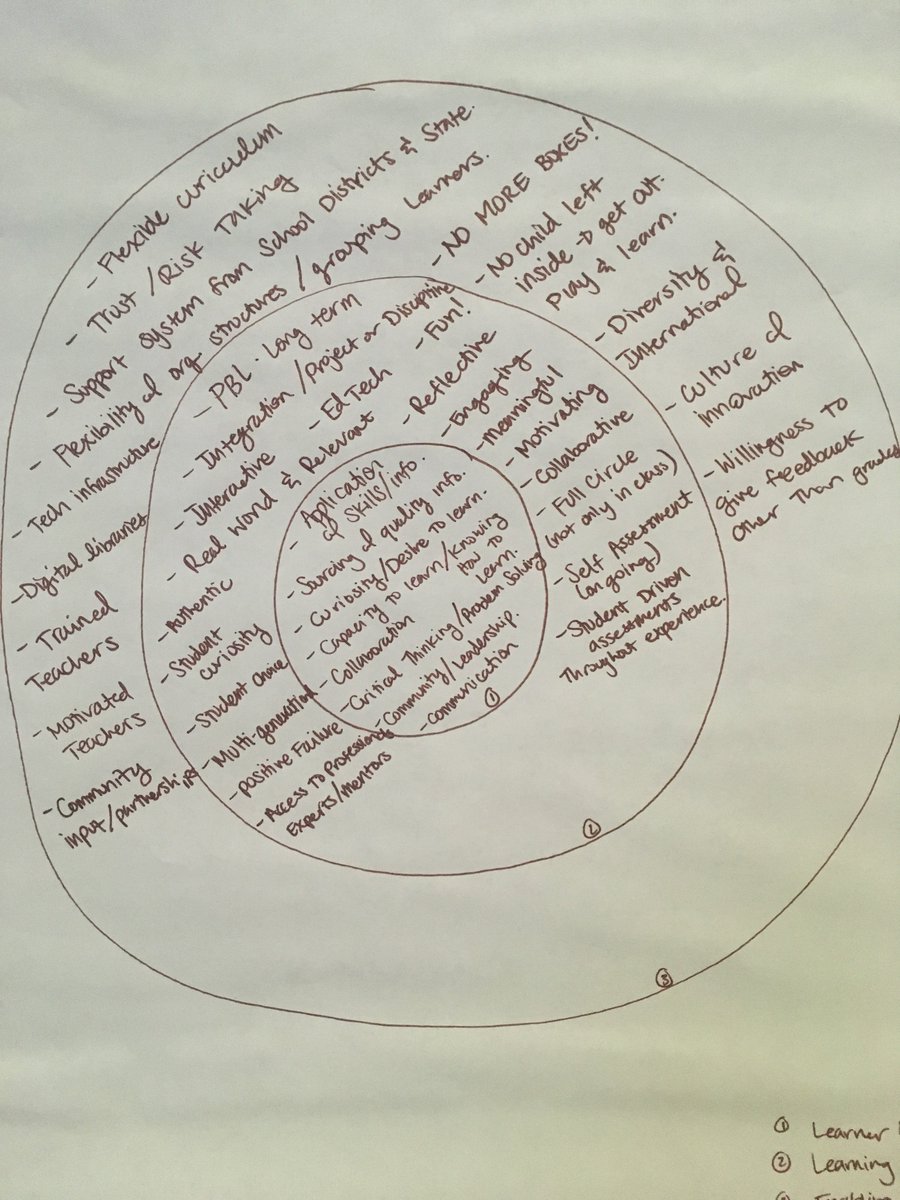 - Flexible curiculum
- Trust / Risk Taking
- Support system from School Districts & State.
- Flexibility of org structures / grouping Learners.
- Tech infrastructure
- Digital libraries
- Trained
Teachers
- Motivated
Teachers
- Community
input/partnerships
- NO MORE BOXES!
- No child left
inside -> get out.
Play & learn.
- Diversity &
International
- Culture of
innovation
- Willingness to
give feedback
other than grades
- PBL. Long term
- Integration / Project or Discipline
- Interactive
- EdTech
- Fun!
- Real World & Relevant
- Reflective
- Authentic
- Student
curiosity
- Student Choice
- Multi-generation
- positive Failure
- Access to Professionals
Experts/mentors
- Engaging
- Meaningful
- Motivating
- Collaborative
- Full Circle
(not only in class)
- Self Assessment
(on going)
- Student Driven
assessments
Throughout experience.
- Application
of skills/info.
- Sourcing of quality info.
- Curiosity/Desire to learn.
- Capacity to learn/knowing
how to
learn.
- Collaboration
- Critical Thinking/Problem Solving
- Community/Leadership.
- Communication
①
②
③
① Learner
② Learning